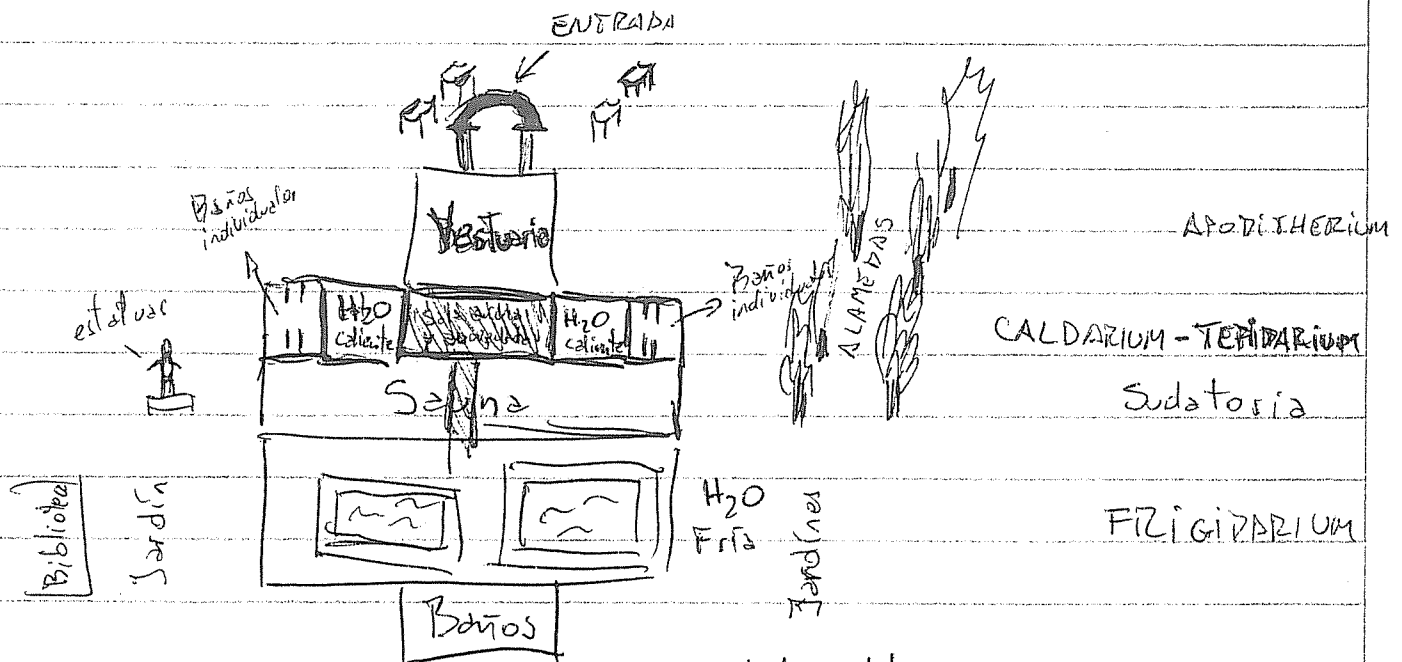 ENTRADA
Baños
individuales
Vestuario
APODITHERIUM
estatuas
H₂O
caliente
H₂O
caliente
Baños
individuales
ALAMEDAS
CALDARIUM - TEPIDARIUM
Sauna
Sudatoria
Biblioteca
Jardín
H₂O
Fría
Jardínes
FRIGIDARIUM
Baños